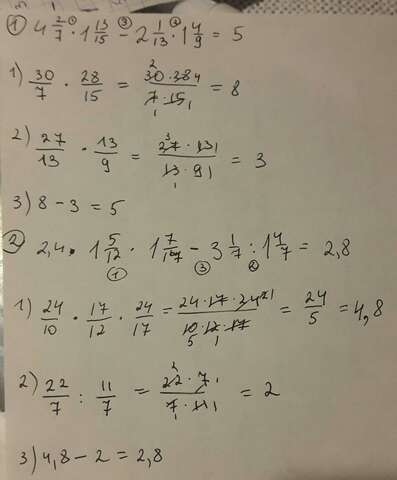 ① 4 2/7 ① · 1 13/15 ③ - 2 1/13 ② · 1 4/9 = 5
1) 30/7 · 28/15 = 30 · 28/7 · 15 = 8
2) 27/13 · 13/9 = 27 · 13/13 · 9 = 3
3) 8 - 3 = 5
② 2,4 · 1 5/12 · 1 7/17 - 3 1/7 : 1 4/7 = 2,8
① ③ ②
1) 24/10 · 17/12 · 24/17 = 24 · 17 · 24/10 · 12 · 17 = 24/5 = 4,8
2) 22/7 : 11/7 = 22 · 7/7 · 11 = 2
3) 4,8 - 2 = 2,8